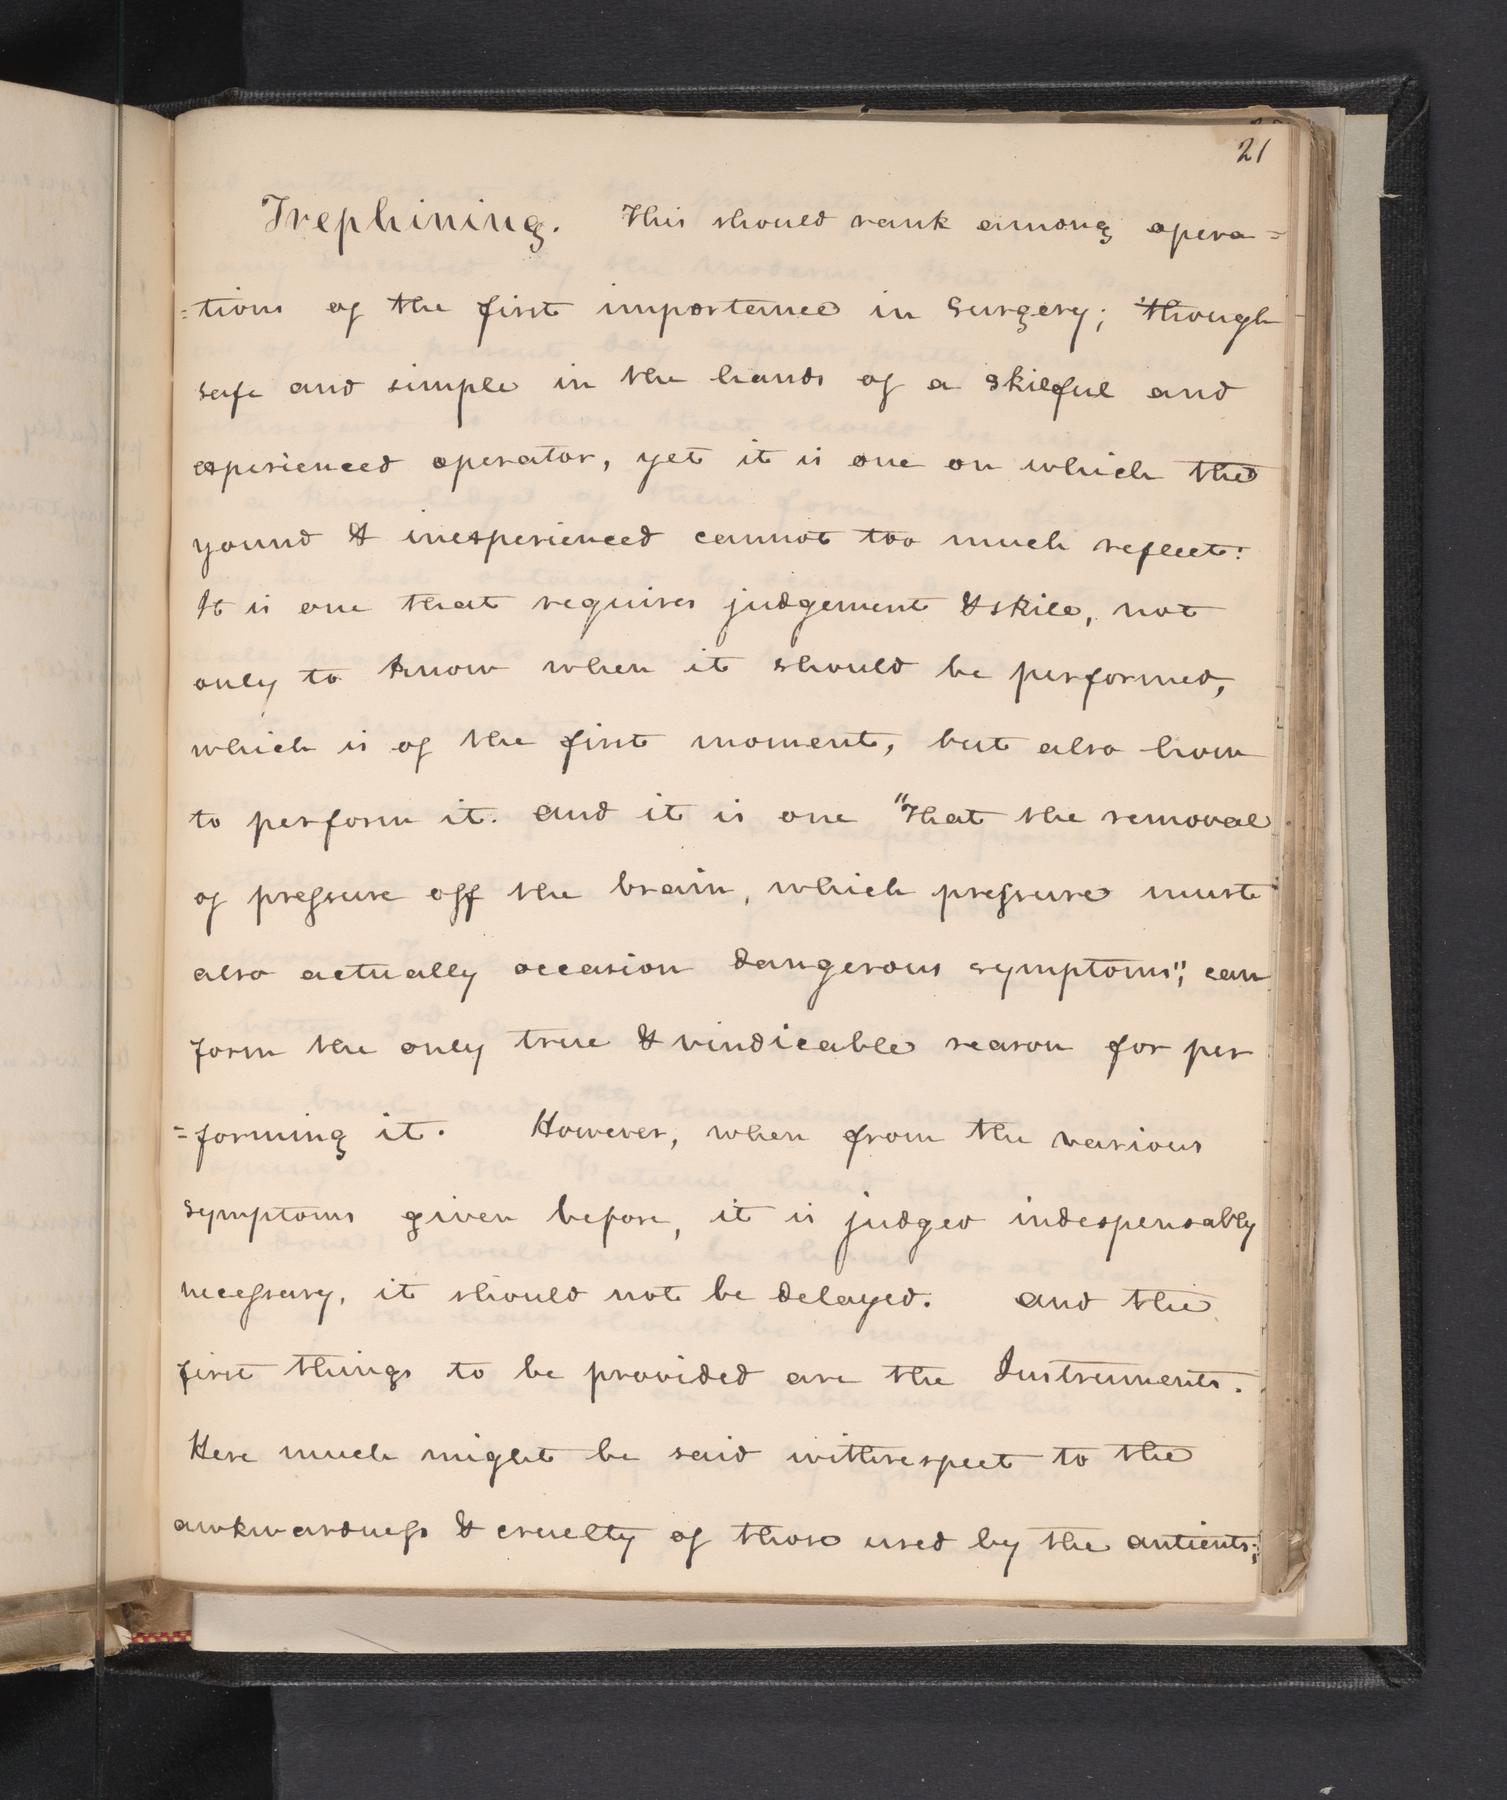 21
Trephining. This should rank among opera=
=tions of the first importance in Surgery; though
safe and simple in the hands of a skilful and
experienced operator, yet it is one on which the
yound & inexperienced cannot too much reflect:
It is one that requires judgement & skill, not
only to know when it should be performed,
which is of the first moment, but also how
to perform it. and it is one "that the removal
of pressure off the brain, which pressure must
also actually occasion dangerous symptoms", can
form the only true & vindicable reason for per
=forming it. However, when from the various
symptoms given before, it is judged indespensably
necessary, it should not be delayed. and the
first things to be provided are the Instruments.
Here much might be said withrespect to the
awkwardness & cruelty of those used by the antients;